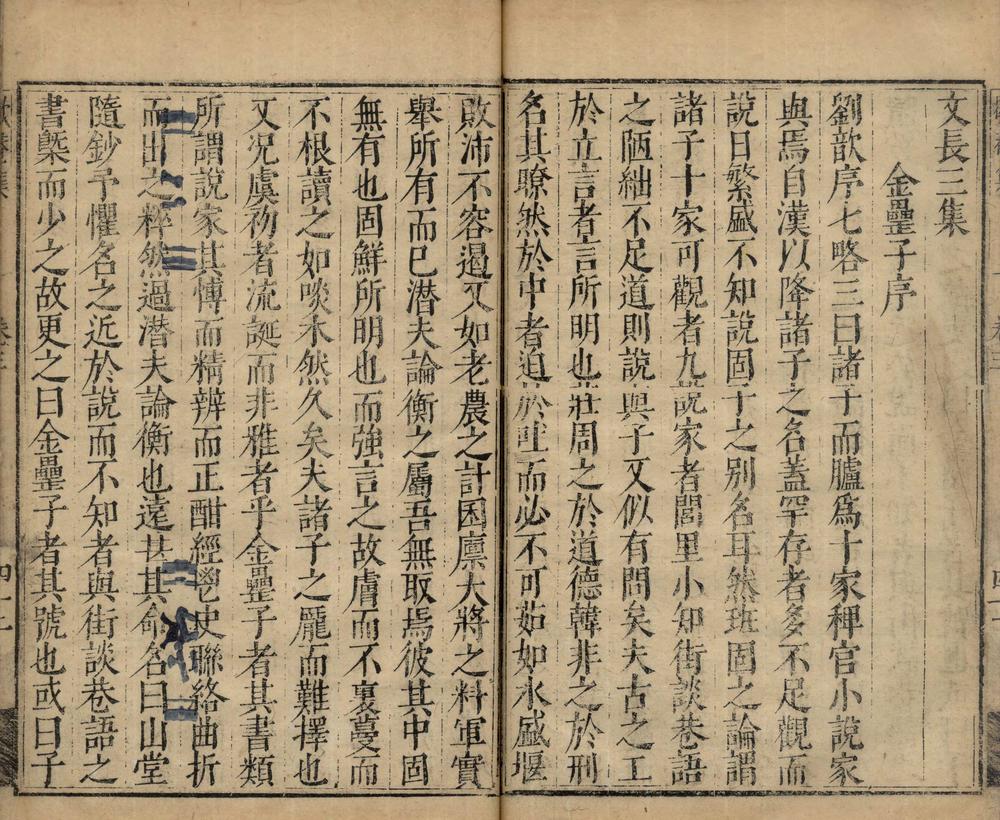 文長三集
金罍子序
劉歆序七略三曰諸子而臚爲十家稗官小說家
與焉自漢以降諸子之名蓋罕存者多不足觀而
說日繁盛不知說固子之别名耳然班固之論謂
諸子十家可觀者九說家者閭里小知街談巷語
之陋絀不足道則說與子又似有間矣夫古之工
於立言者言所明也莊周之於道德韓非之於刑
名其瞭然於中者迫於吐而必不可茹如水盛堰
敗沛不容遏又如老農之計囷廪大將之料軍實
舉所有而已潜夫論衡之屬吾無取焉彼其中固
無有也固鮮所明也而強言之故膚而不裏蔓而
不根讀之如啖水然久矣夫諸子之龎而難擇也
又况虞初者流誕而非雅者乎金罍子者其書類
所謂說家其慱而精辨而正酣經鬯史聯絡曲折
而出之粹然過潜夫論衡也遠甚其命名曰山堂
隨鈔予懼名之近於說而不知者與街談巷語之
書槩而少之故更之曰金罍子者其號也或曰子